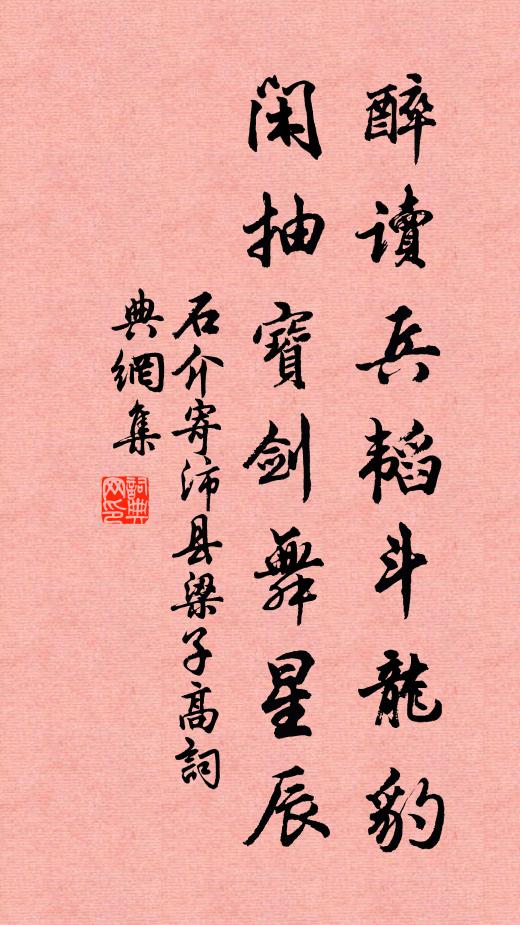 醉讀兵韬斗龍豹
閑抽寶劍舞星辰
石介寄沛县梁子高詞
典網集
詞典網印